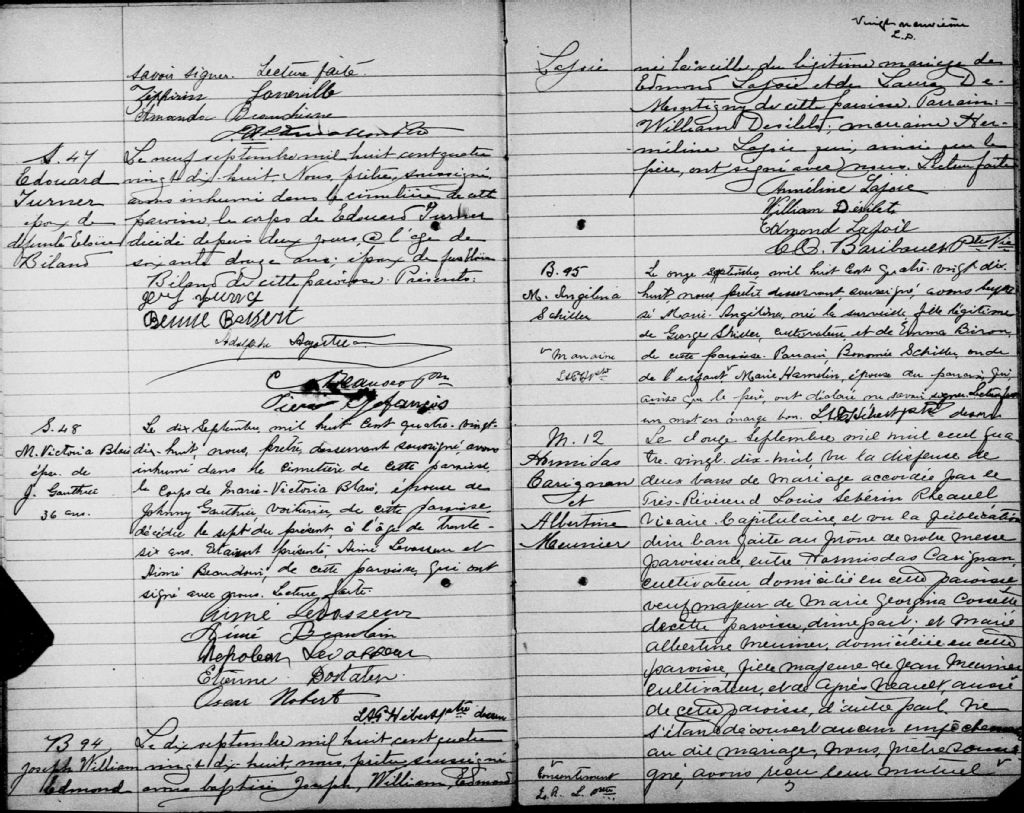 savoir signer. Lecture faite.
Zéphirin
Amanda Beaudoin
S. 47
Edouard
Turner
époux de
défunte Eloïse
Biland
Le neuf septembre mil huit cent quatre
vingt dix-huit, Nous, prêtre, soussigné
avons inhumé dans le cimetière de cette
paroisse le corps de Edouard Turner
décédé depuis deux jours, @ l'âge de
soixante douze ans; époux de
Biland de cette paroisse. Présents:
Adolphe
Pierre
S. 48
M. Victoria Blais
épse. de
J. Gauthier
36 ans.
Le dix Septembre, mil huit cent quatre-vingt-
dix-huit, nous, prêtre, desservant soussigné, avons
inhumé dans le cimetière de cette paroisse,
le corps de Marie-Victoria Blais, épouse de
Johnny Gauthier, voiturier, de cette paroisse,
décédée le sept du présent à l'âge de trente-
six ans. Etaient présents, Aimé Levasseur et
Aimé Beaudoin, de cette paroisse, qui ont
signé avec nous. Lecture faite.
Aimé Levasseur
Aimé Beaudoin
Napoleon Levasseur
Etienne
Oscar Robert
L.A.G. Hébert ptre desserv
B 94
Joseph William
Edmond
Le dix septembre mil huit cent quatre
vingt dix-huit, nous, prêtre, soussigné
avons baptisé Joseph, William, Edmond
Vingt neuvième
L.D.
Lajoie
né la veille, du légitime mariage de
Edmond Lajoie et de Laura De-
Montigny de cette paroisse. Parrain:
William Desilets; marraine Her-
méline Lajoie qui, ainsi que le
père, ont signé avec nous. Lecture faite
Lajoie
William Désilets
Edmond Lajoie
Baribault Ptre Vic
B. 95
M. Angélina
Schiller
v marraine
Le onze septembre, mil huit cent quatre-vingt dix-
huit, nous prêtre desservant soussigné, avons bapti-
sé Marie-Angélina, née la surveille, fille légitime
de George Shiller, cultivateur, et de Emma Biron
de cette paroisse. Parrain Schiller, oncle
de l'enfant v Marie Hamelin, épouse du parrain, qui
ainsi que le père, ont déclaré ne savoir signer. Lecture faite
un mot en marge bon. L.A.G. Hébert ptre desserv
M. 12
Hormidas
Carignan
et
Albertine
Meunier
Le douze septembre mil huit cent qua-
tre-vingt-dix-huit, vu la dispense de
deux bans de mariage accordée par le
Très-Révérend Louis Séverin Rheault
Vicaire Capitulaire, et vu la publication
d'un ban faite au prone de notre messe
paroissiale, entre Hormisdas Carignan
cultivateur domicilié en cette paroisse,
veuf majeur de Marie Georgina Cossette
de cette paroisse, d'une part; et Marie
Albertine Meunier, domiciliée en cette
paroisse, fille majeure de Jean Meunier
cultivateur, et de Agnès Neault, aussi
de cette paroisse, d'autre part, ne
s'étant découvert aucun empêchement
au dit mariage, nous, prêtre soussi-
gné, avons reçu leur mutuel v
v
consentement